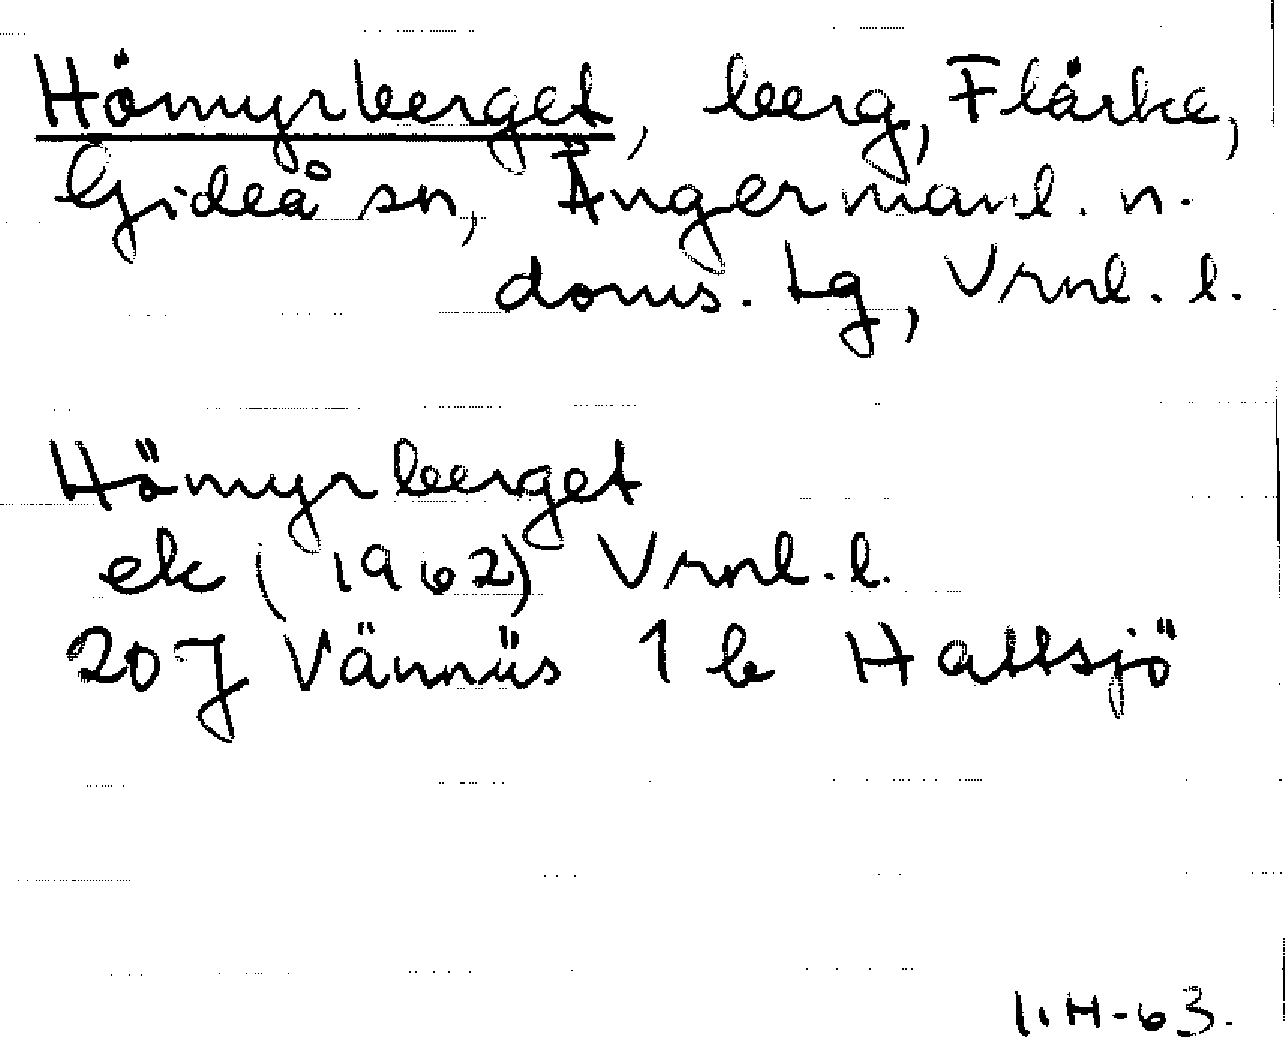 Hömyrberget, berg, Flärke,
Gideå sn, Ångermanl. n.
doms. tg, Vrnl. l.
Hömyrberget
ek (1962) Vrnl. l.
20J Vännäs 1 b Hattsjö
I.H-63.